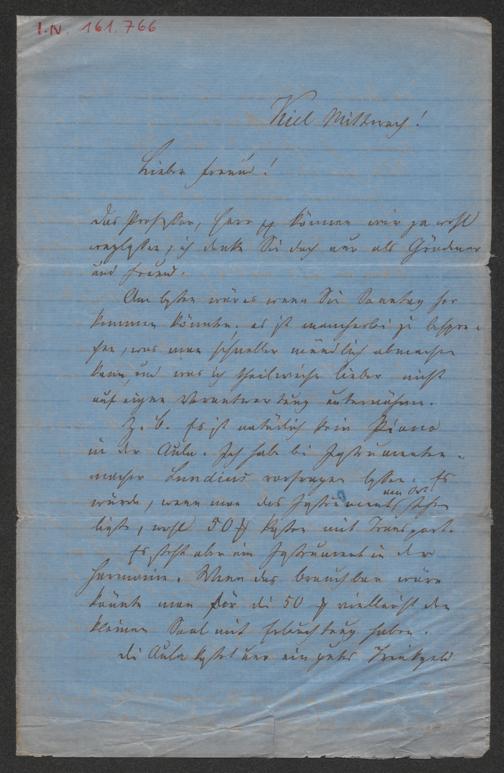 I.N. 161.766
Kiel Mittwoch!
Lieber Freund!
das Professor, Herr pp können wir ja wohl
weglassen, ich denke Sie doch nur als Gönner
und Freund.
Am besten wär es wenn Sie Sonntag her
kommen könnten. es ist mancherlei zu bespre-
chen, was man schneller mündlich abmachen
kann, und was ich theilweise lieber nicht
auf eigne Verantwortung unternähme.
Z. b. Es ist natürlich kein Piano
in der Aula. Ich habe bei Instrumenten-
macher Lundius vorfragen lassen. Es
würde, wenn man das Instrument von Ort stehen
ließe, wohl 50 kosten mit Transport.
Es steht aber ein Instrument in der
Harmonie. Wenn das brauchbar wäre
könnte man für die 50 vielleicht den
kleinen Saal mit Erleuchtung haben.
die Aula kostet nur ein gutes Trinkgeld